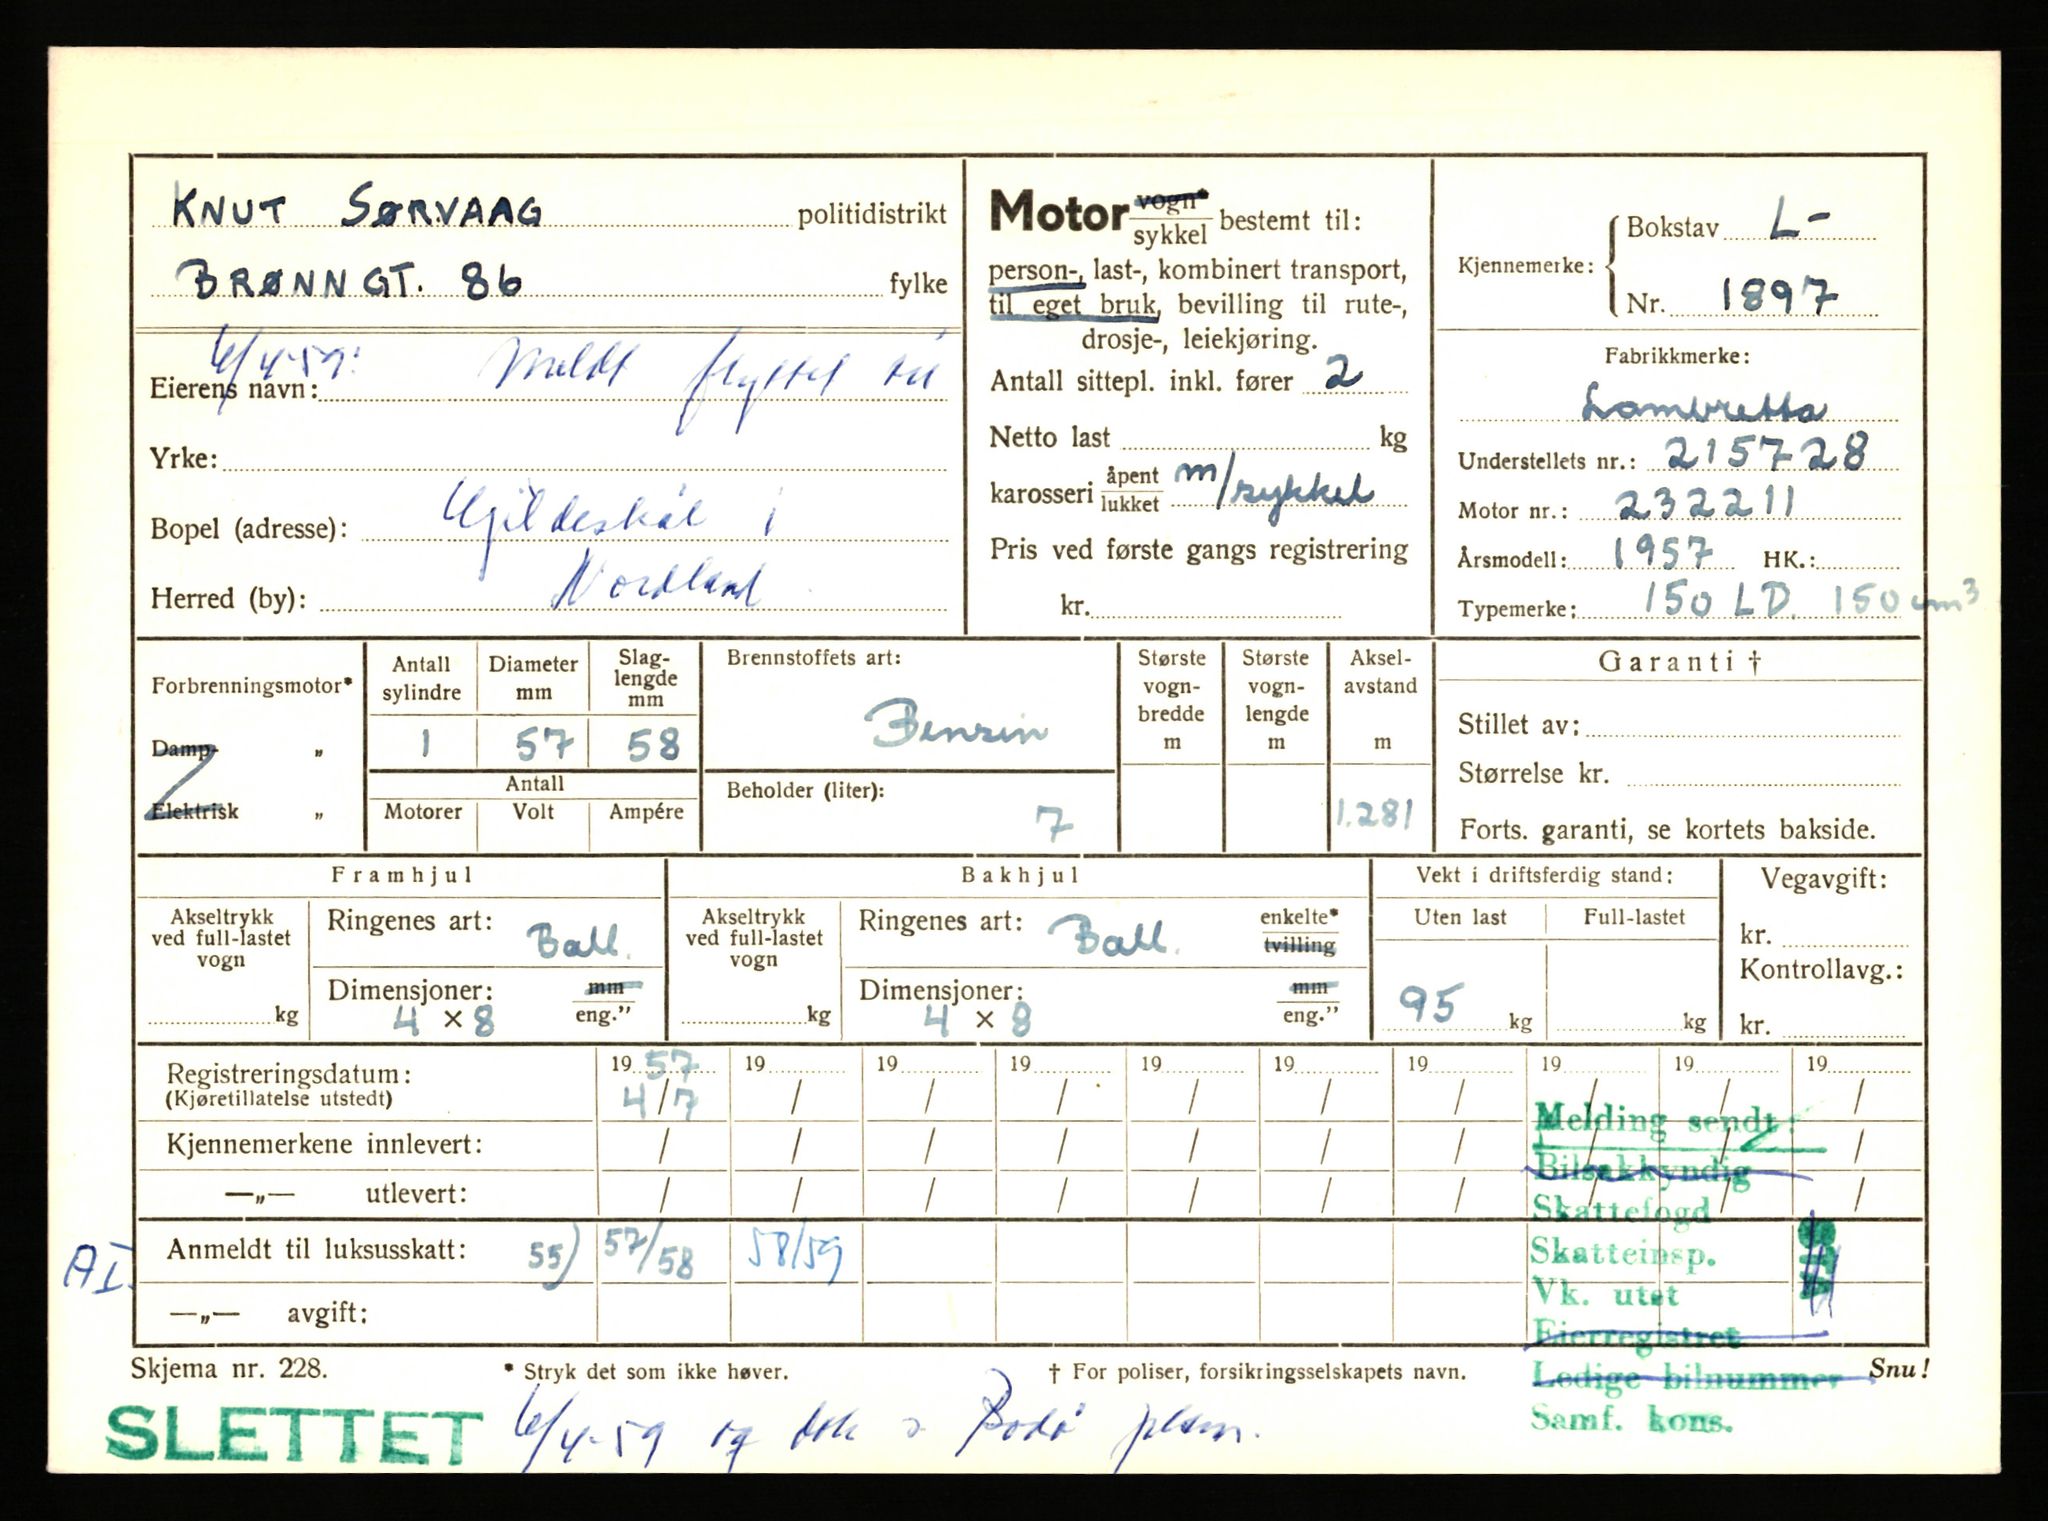 KNUT SØRVAAG politidistrikt
BRØNNGT. 86 fylke
6/4-59: Meldt flyttet til
Eierens navn:
Yrke:
Bopel (adresse): Gildeskål i
Herred (by): Nordland
Motor vogn* sykkel bestemt til:
person-, last-, kombinert transport,
til eget bruk, bevilling til rute-,
drosje-, leiekjøring.
Antall sittepl. inkl. fører 2
Netto last kg
karosseri åpent lukket m/sykkel
Pris ved første gangs registrering
kr.
Kjennemerke: Bokstav L-
Nr. 1897
Fabrikkmerke:
Lambretta
Understellets nr.: 215728
Motor nr.: 232211
Årsmodell: 1957 HK.:
Typemerke: 150 LD. 150 cm³
Forbrenningsmotor*
Damp- „
Elektrisk „
Antall sylindre
Diameter mm
Slag-lengde mm
1 57 58
Antall
Motorer Volt Ampére
Brennstoffets art:
Bensin
Beholder (liter):
7
Største vogn-bredde m
Største vogn-lengde m
Aksel-avstand m
1.281
Garanti †
Stillet av:
Størrelse kr.
Forts. garanti, se kortets bakside.
Framhjul
Akseltrykk ved full-lastet vogn
kg
Ringenes art: Ball.
Dimensjoner: mm eng."
4 × 8
Bakhjul
Akseltrykk ved full-lastet vogn
kg
Ringenes art: Ball. enkelte* tvilling
Dimensjoner: mm eng."
4 × 8
Vekt i driftsferdig stand:
Uten last Full-lastet
95 kg kg
Vegavgift:
kr.
Kontrollavg.:
kr.
Registreringsdatum: 19 57 19 19 19 19 19 19 19 19 19
(Kjøretillatelse utstedt) 4/7 / / / / / / / / /
Kjennemerkene innlevert: / / / / / / / / / /
—„— utlevert: / / / / / / / / / /
AI. Anmeldt til luksusskatt: 55) 57/58 58/59
—„— avgift:
Melding sendt:
Bilsakkyndig
Skattefogd
Skatteinsp.
Vk. utet
Eierregistret
Ledige bilnummer
Samf. kons.
Skjema nr. 228. * Stryk det som ikke høver. † For poliser, forsikringsselskapets navn. Snu!
SLETTET 6/4-59 og dok Bodø